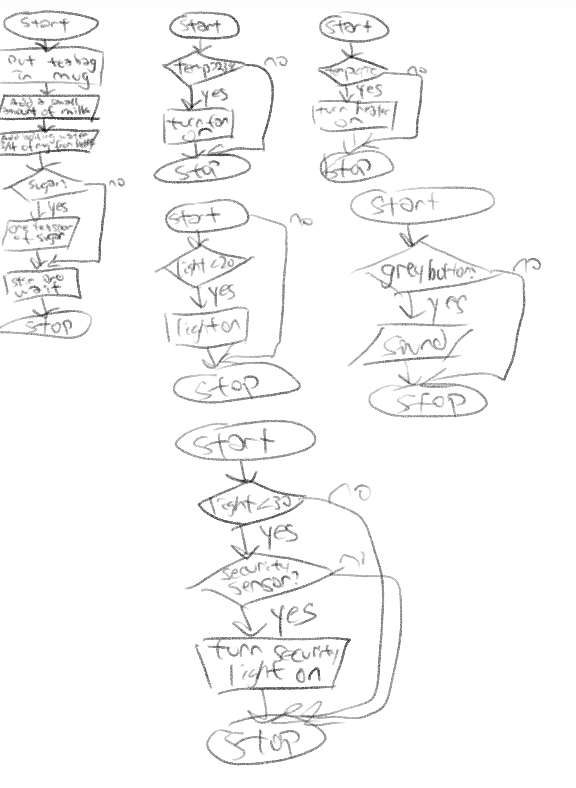 start
put teabag
in mug
Add a small
amount of milk
sugar?
no
yes
one teaspoon
of sugar
stir and
wait
stop
start
no
yes
turn fan
on
stop
start
no
yes
turn heater
on
stop
start
no
light <20
yes
light on
stop
start
grey button?
no
yes
sound
stop
start
light <30
no
yes
security
sensor?
no
yes
turn security
light on
stop